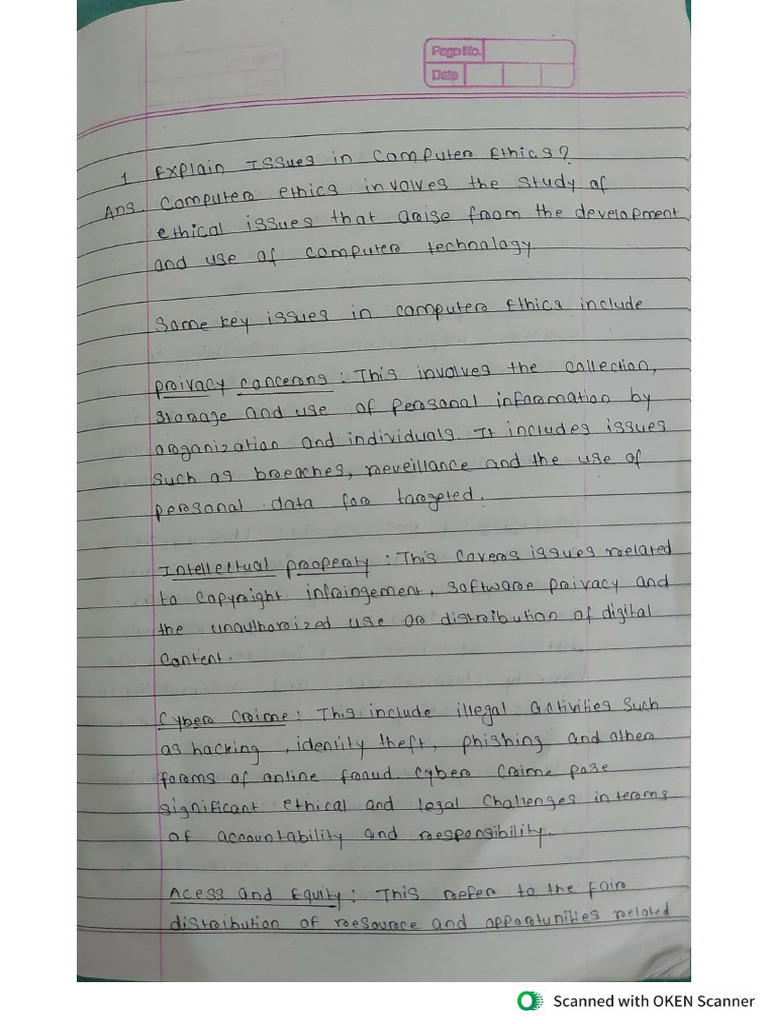 Page No.
Date
1 Explain Issues in Computer Ethics?
Ans. Computer ethics involves the study of
ethical issues that arise from the development
and use of computer technology
Some key issues in computer Ethics include
privacy concerns : This involves the collection,
storage and use of personal information by
organization and individuals. It includes issues
such as breaches, reveillance and the use of
personal data for targeted.
Intellectual property : This covers issues related
to copyright infringement, software privacy and
the unauthorized use or distribution of digital
content.
Cyber Crime : This include illegal activities such
as hacking , identity theft, phishing and other
forms of online fraud. Cyber Crime pose
significant ethical and legal challenges in terms
of accountability and responsibility.
Acess and Equity : This refer to the fair
distribution of resource and opportunities related
Scanned with OKEN Scanner